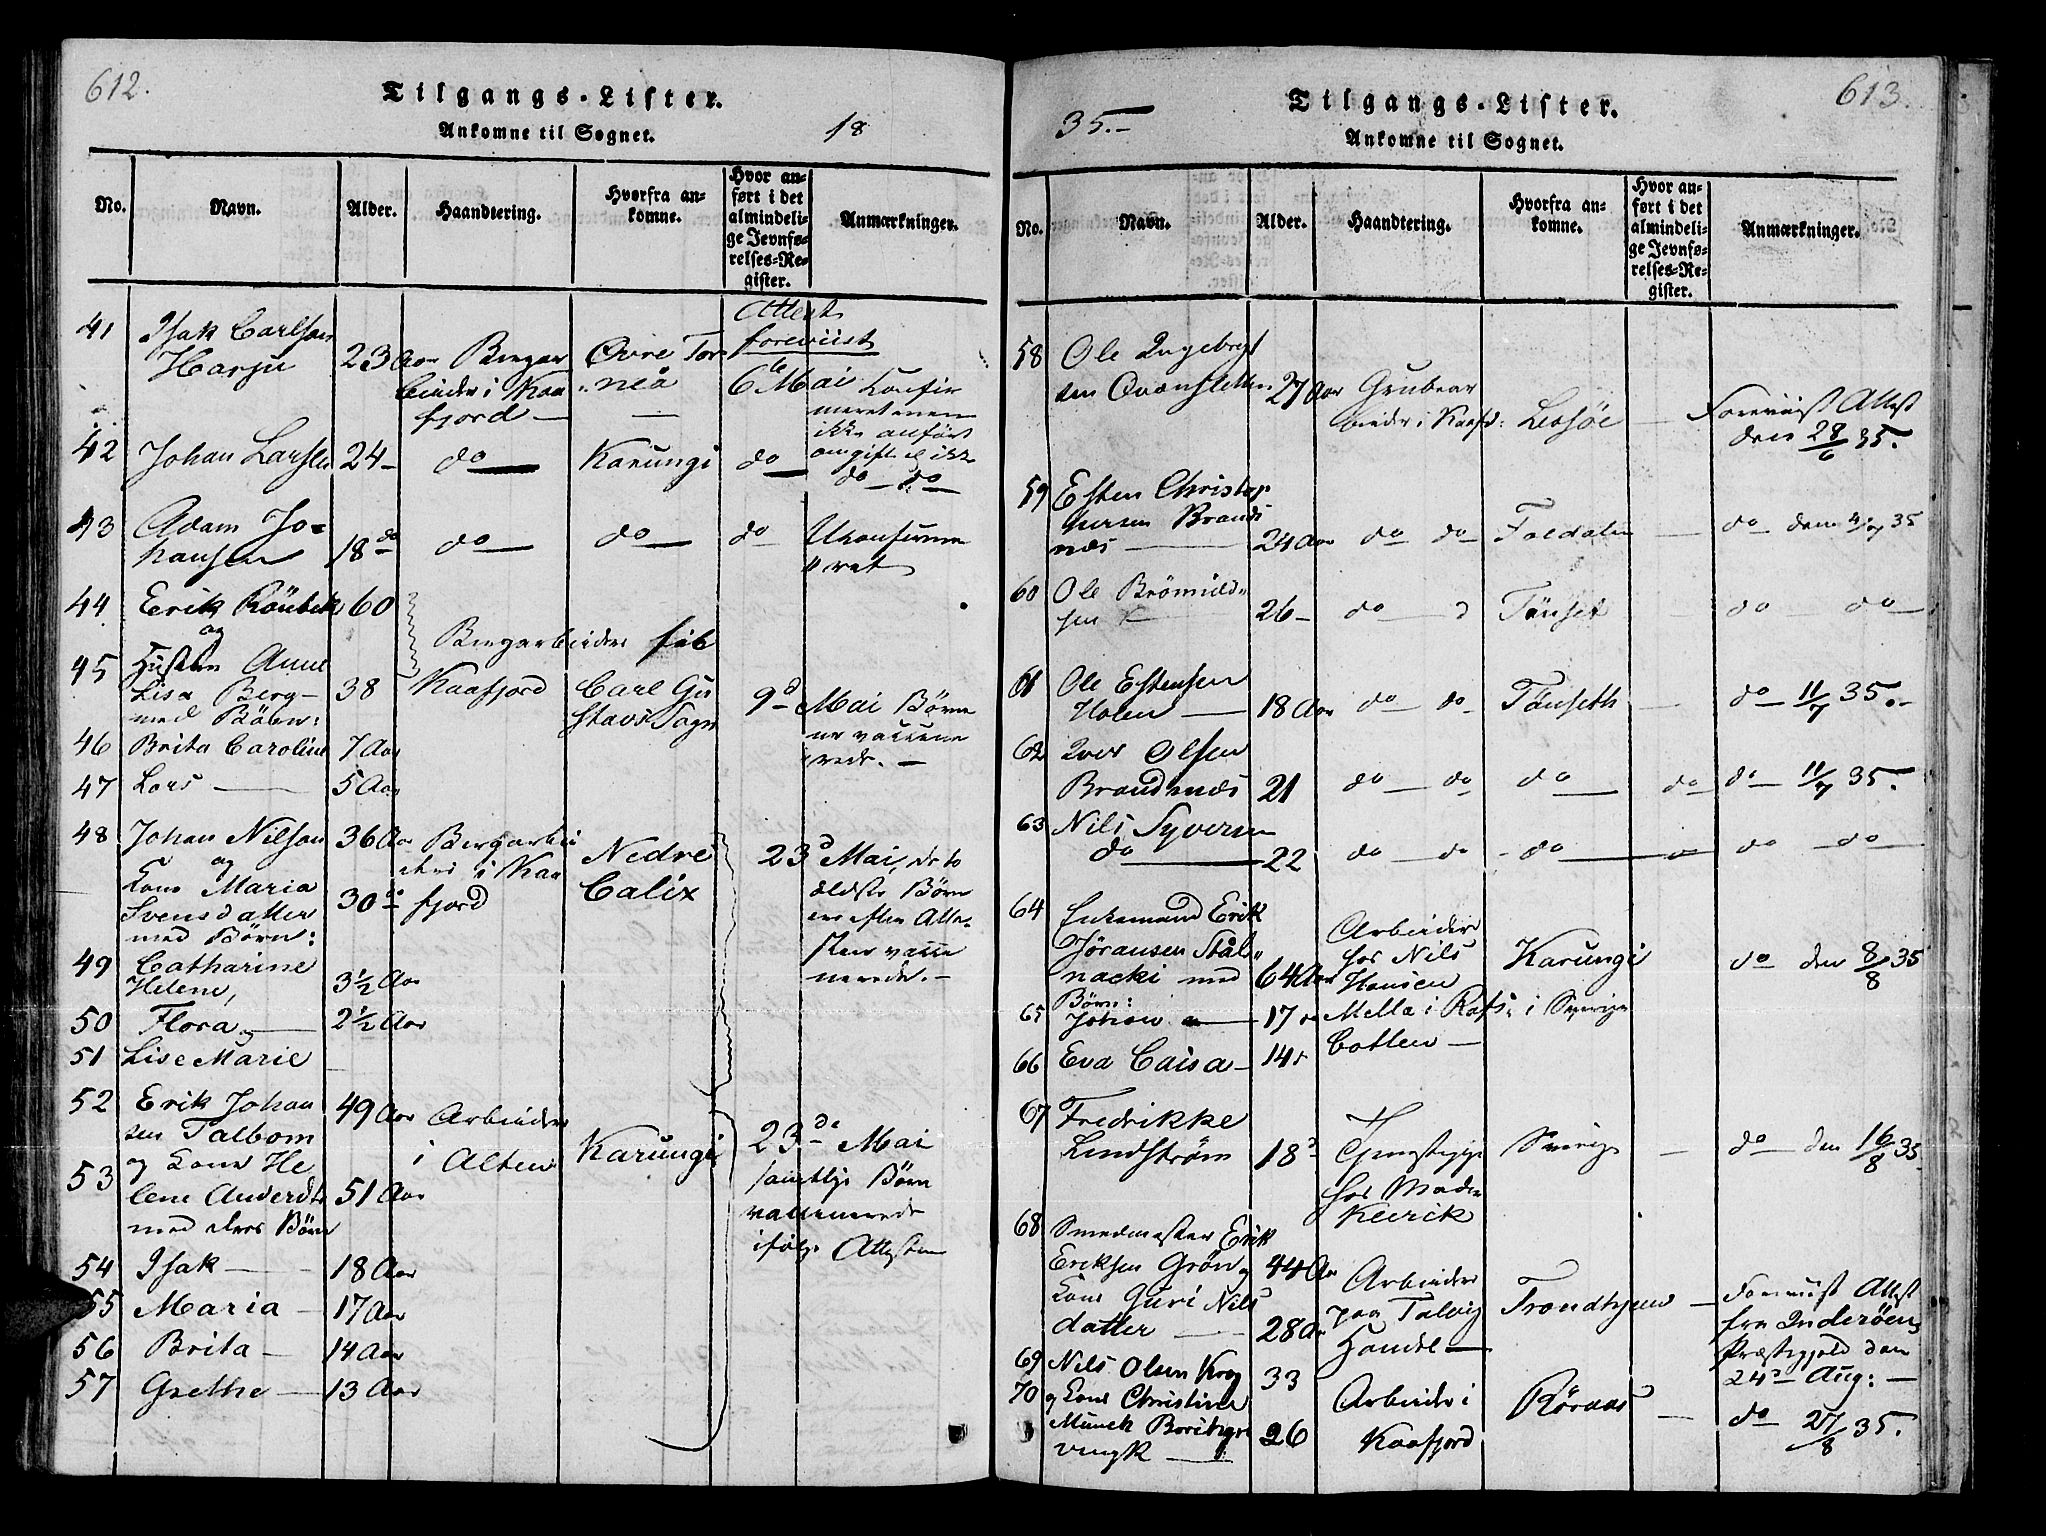 612.
Tilgangs-Lister.
Ankomne til Sognet.
18
No.
Navn.
Alder.
Haandtering.
Hvorfra an-
komne.
Hvor an-
ført i det
almindeli-
ge Jevnfø-
relses-Re-
gister.
Anmærkninger.
41 Isak Carlsen
Harju 23 Aar Bergar
beider i Kaa
fjord — Øvre Tor
neå
Attest
foreviist
6te Mai Confir
ikke anført
42 Johan Larsen 24 — do — Karungi do
do — do —
43 Adam Jo-
hansen 18 do do — do — do Ukonfirme
ret
44 Erik 60
og
Bergarbeider
45 Hustru Anne
Lisa Berg- 38 Kaafjord Carl Gu
stavs Sogn 9d Mai Børne
ne vaccine
rede. —
med Børn:
46 Brita Caroline 7 Aar
47 Lars — 5 Aar
48 Johan Nilsen 36 Aar Bergarbei
der i Kaa
fjord Nedre
Calix 23d Mai, de to
ældste Børn
ere efter Atte-
sten vacci
nerede. —
og
Kone Maria 30 do
Svensdatter
med Børn:
49 Catharine
Helene, 3½ Aar
50 Flora og — 2½ Aar
51 Lise Marie
52 Erik Johan
sen Talbom 49 Aar Arbeider
i Alten Karungi 23de Mai
samtlige Børn
vaccinerede
ifølge Attesten
53 og Kone He
lene Andersdtr 51 Aar
med deres Børn
54 Isak — 18 Aar
55 Maria — 17 Aar
56 Brita — 14 Aar
57 Grethe — 13 Aar
613.
Tilgangs-Lister.
35.—
Ankomne til Sognet.
No.
Navn.
Alder.
Haandtering.
Hvorfra an-
komne.
Hvor an-
ført i det
almindeli-
ge Jevnfø-
relses-Re-
gister.
Anmærkninger.
58 Ole Ingebrigt
sen 27 Aar Grubear
beider i Kaafd: Lessøe — Foreviist Attest
den 28/6 35.
59 Esten Christop
hersen Brands
næs — 24 Aar do do Foldalen — do den 4/7 35
60 Ole Brömild
sen 26 — do — d Tönset do do
61 Ole Estensen
Holen — 18 Aar do — do Tönseth — do — 11/7 35.—
62 Iver Olsen
Brandsnæs 21 do — do do — do do — 11/7 35.
63 Nils Syversen
do — 22 do — do — do — do — do
64 Enkemand Erik
Jöransen Stål
nacki med 64 Aar Arbeider
hos Nils
Hansen Karungi
i Sverige do den 8/8 35
Børn:
65 Johan — 17 Mella i Rafs:
66 Eva Caisa — 14 Cotten —
67 Fredrikke
Lindström 18 Tjenestepige
hos Mad:
Sverige — do — den 16/8 35
68 Smedmester Erik
Eriksen Grön og 44 Aar Arbeider
paa Talvig
Handel — Trondhjem — Foreviist Attest
fra Inderöens
Præstegjeld den
24d Aug: —
Kone Guri Nils
datter — 28 Aar
69 Nils Olsen Krog 33 Arbeider i
Kaafjord Röraas — do 27/8 35.
70 og Kone Christine
Munck 26